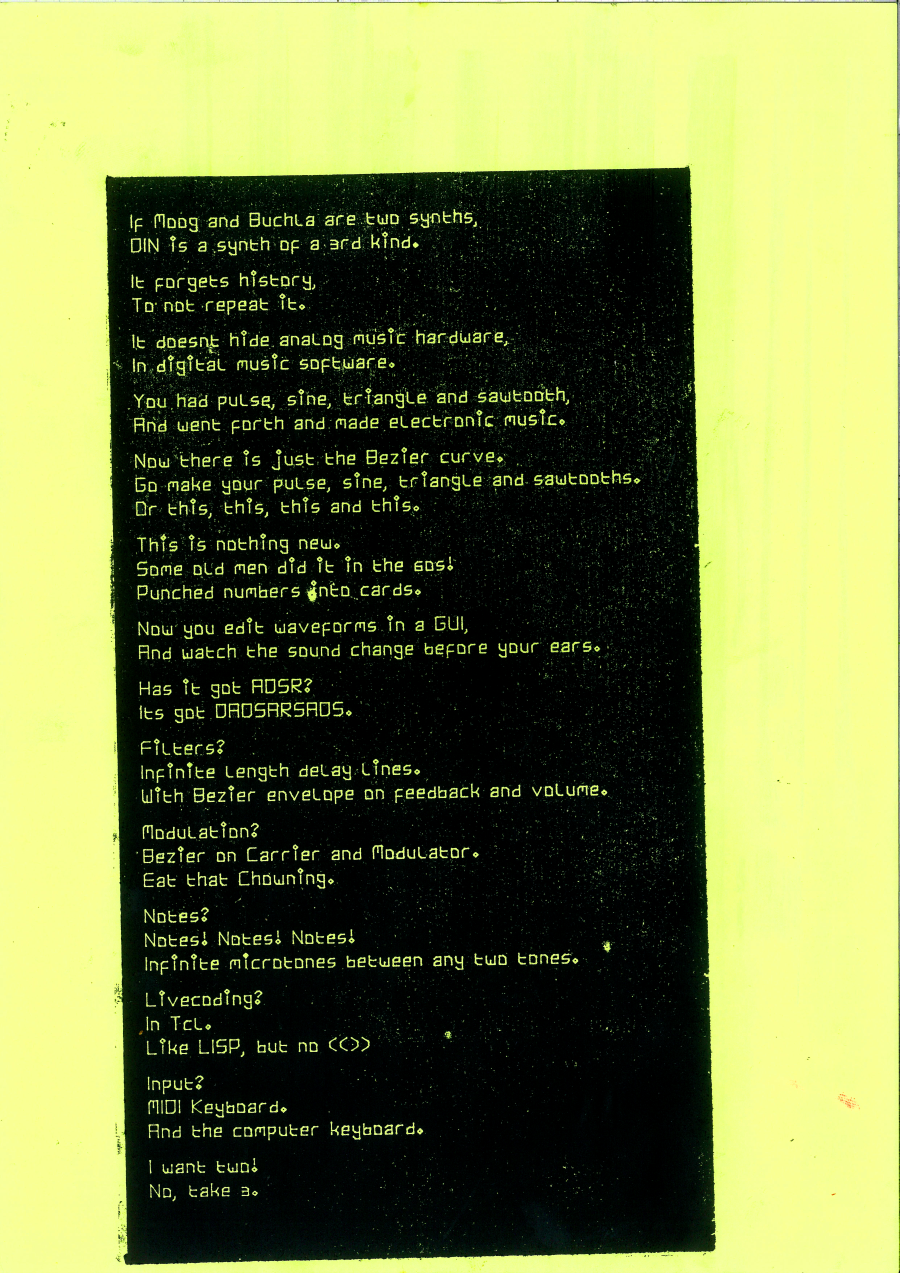 If Moog and Buchla are two synths,
DIN is a synth of a 3rd kind.
It forgets history,
To not repeat it.
It doesnt hide analog music hardware,
In digital music software.
You had pulse, sine, triangle and sawtooth,
And went forth and made electronic music.
Now there is just the Bezier curve.
Go make your pulse, sine, triangle and sawtooths.
Or this, this, this and this.
This is nothing new.
Some old men did it in the 60s!
Punched numbers into cards.
Now you edit waveforms in a GUI,
And watch the sound change before your ears.
Has it got ADSR?
Its got DADSARSADS.
Filters?
Infinite length delay lines.
With Bezier envelope on feedback and volume.
Modulation?
Bezier on Carrier and Modulator.
Eat that Chowning.
Notes?
Notes! Notes! Notes!
Infinite microtones between any two tones.
Livecoding?
In Tcl.
Like LISP, but no (())
Input?
MIDI Keyboard.
And the computer keyboard.
I want two!
No, take 3.